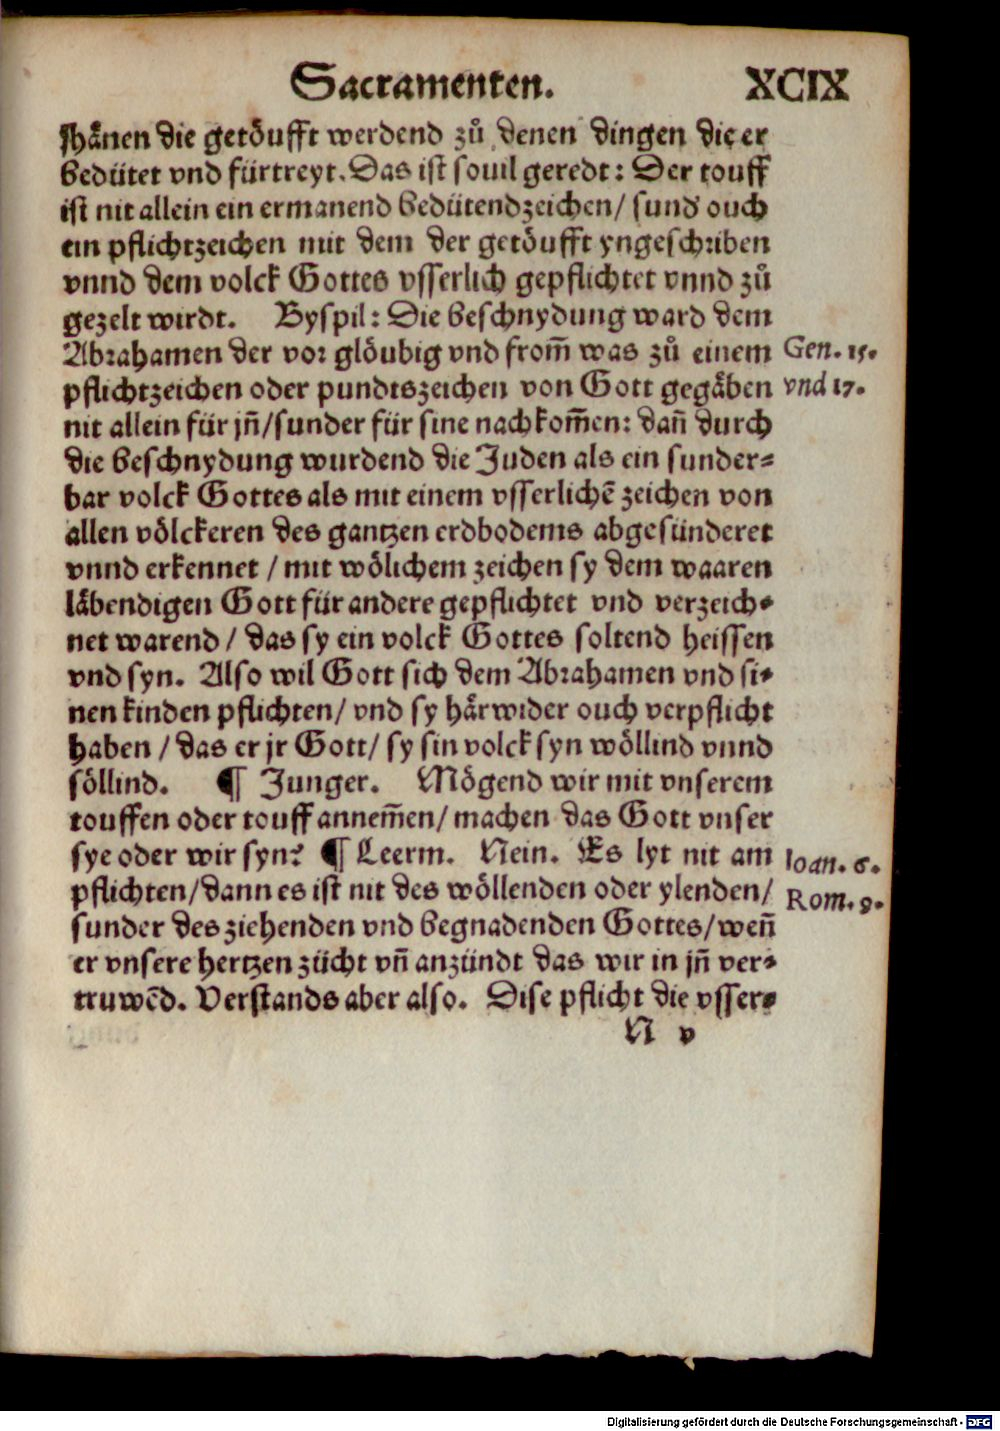 Sacramenten. XCIX
jhånen die getöufft werdend zů denen dingen die er
bedütet vnd fürtreyt. Das ist souil geredt: Der touff
ist nit allein ein ermanend bedütendzeichen/ sund' ouch
ein pflichtzeichen mit dem der getöufft yngeschriben
vnnd dem volck Gottes vsserlich gepflichtet vnnd zů
gezelt wirdt. Byspil: Die beschnydung ward dem
Abrahamen der vor glöubig vnd from̃ was zů einem
Gen. 15.
pflichtzeichen oder pundtszeichen von Gott gegåben
vnd 17.
nit allein für jñ/sunder für sine nachkom̃en: dañ durch
die beschnydung wurdend die Juden als ein sunder-
bar volck Gottes als mit einem vsserlichẽ zeichen von
allen völckeren des gantzen erdbodems abgesünderet
vnnd erkennet / mit wölichem zeichen sy dem waaren
låbendigen Gott für andere gepflichtet vnd verzeich-
net warend / das sy ein volck Gottes soltend heissen
vnd syn. Also wil Gott sich dem Abrahamen vnd si-
nen kinden pflichten/ vnd sy hårwider ouch verpflicht
haben / das er jr Gott/ sy sin volck syn wöllind vnnd
söllind. ¶ Junger. Mögend wir mit vnserem
touffen oder touff annem̃en/ machen das Gott vnser
sye oder wir syn? ¶ Leerm. Nein. Es lyt nit am
Ioan. 6.
pflichten/dann es ist nit des wöllenden oder ylenden/
Rom. 9.
sunder des ziehenden vnd begnadenden Gottes/weñ
er vnsere hertzen zücht vñ anzündt das wir in jñ ver-
truwẽd. Verstands aber also. Dise pflicht die vsser-
N v
Digitalisierung gefördert durch die Deutsche Forschungsgemeinschaft - DFG